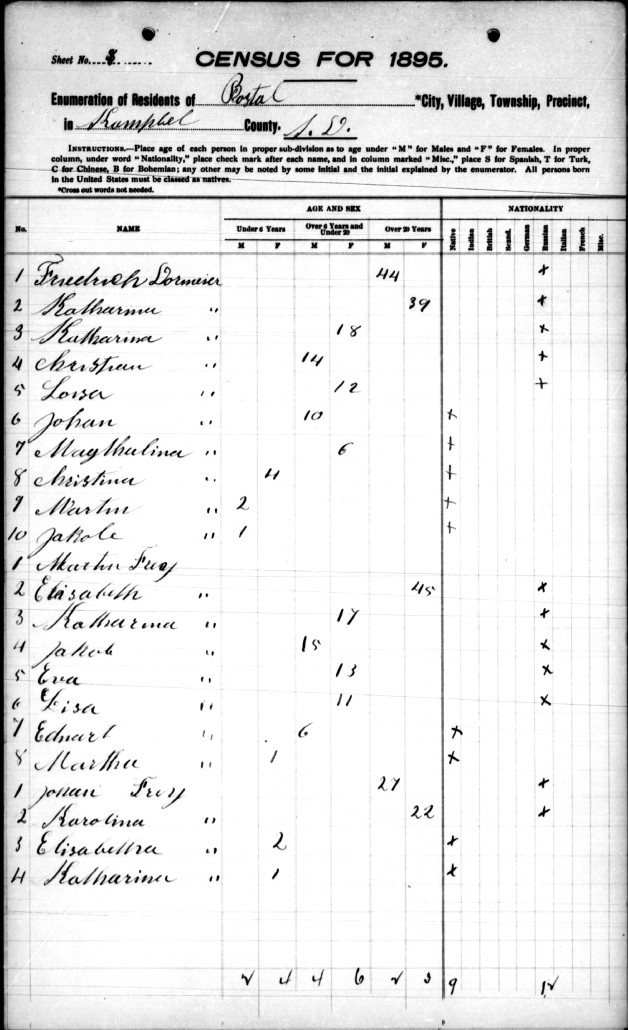 Sheet No. 8
CENSUS FOR 1895.
Enumeration of Residents of Postal *City, Village, Township, Precinct,
in Kampbel County. S. D.
INSTRUCTIONS.—Place age of each person in proper sub-division as to age under "M" for Males and "F" for Females. In proper
column, under word "Nationality," place check mark after each name, and in column marked "Misc.," place S for Spanish, T for Turk,
C for Chinese, B for Bohemian; any other may be noted by some initial and the initial explained by the enumerator. All persons born
in the United States must be classed as natives.
*Cross out words not needed.
AGE AND SEX NATIONALITY
No. NAME Under 6 Years Over 6 Years and Under 20 Over 20 Years Native Indian British Scand. German Russian Italian French Misc.
M F M F M F
1 Friedrich Dormeier 44 x
2 Katharina " 39 x
3 Katharina " 18 x
4 Christian " 14 x
5 Loisa " 12 x
6 Johan " 10 x
7 Magthalina " 6 x
8 Christina " 4 x
9 Martin " 2 x
10 Jakob " 1 x
1 Martin Frey
2 Elisabeth " 45 x
3 Katharina " 17 x
4 Jakob " 15 x
5 Eva " 13 x
6 Lisa " 11 x
7 Eduart " 6 x
8 Martha " 1 x
1 Johan Frey 27 x
2 Karolina " 22 x
3 Elisabetha " 2 x
4 Katharina " 1 x
2 4 4 6 2 3 9 12